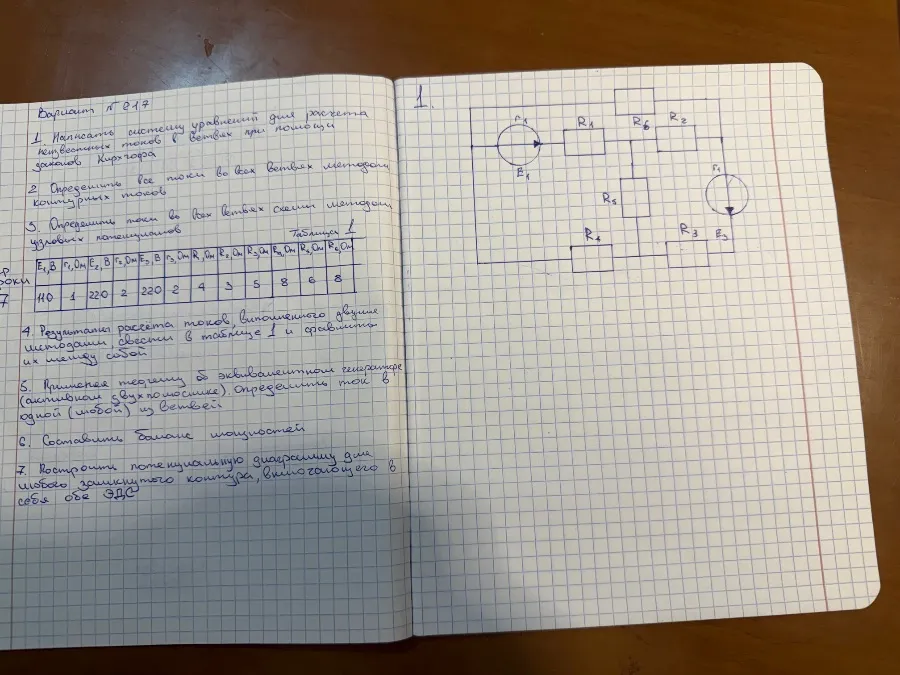 Вариант № 217
1. Написать систему уравнений для расчета
неизвестных токов в ветвях при помощи
законов Кирхгофа
2 Определить все токи во всех ветвях методом
контурных токов
3. Определить токи во всех ветвях схемы методом
узловых потенциалов
Таблица 1
E₁, В r₁, Ом E₂, В r₂, Ом E₃, В r₃, Ом R₁, Ом R₂, Ом R₃, Ом R₄, Ом R₅, Ом R₆, Ом
р
роки
7 110 1 220 2 220 2 4 3 5 8 6 8
4. Результаты расчета токов, выполненного двумя
методами, свести в таблице 1 и сравнить
их между собой
5. Применяя теорему об эквивалентном генераторе
(активном двухполюснике) определить ток в
одной (любой) из ветвей
6. Составить баланс мощностей
7. Построить потенциальную диаграмму для
любого замкнутого контура, включающего в
себя обе ЭДС
1.
r₁ R₁ R₆ R₂
E₁ r₁
R₅
E₃
R₄ R₃